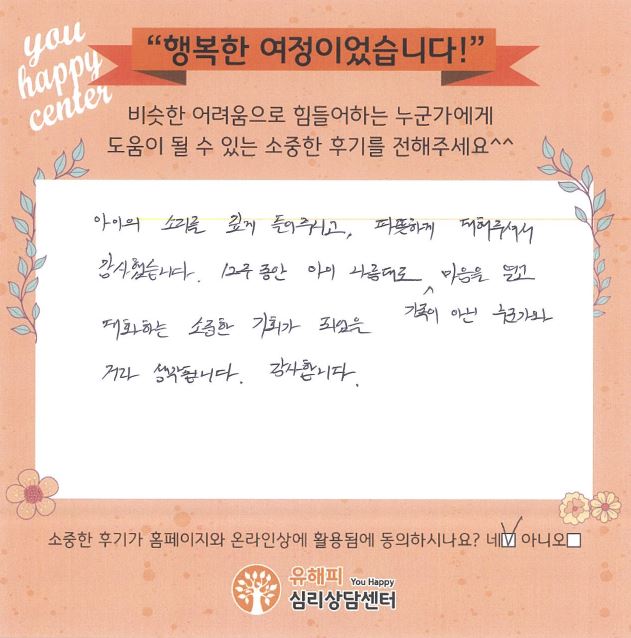 you
happy
center
“행복한 여정이었습니다!”
비슷한 어려움으로 힘들어하는 누군가에게
도움이 될 수 있는 소중한 후기를 전해주세요^^
아이의 소리를 깊게 들어주시고, 따뜻하게 대해주셔서
감사했습니다. 12주 동안 아이 나름대로 마음을 열고
가족이 아닌 누군가와
대화하는 소중한 기회가 되었을
거라 생각됩니다. 감사합니다.
소중한 후기가 홈페이지와 온라인상에 활용됨에 동의하시나요? 네 아니오
유해피 You Happy
심리상담센터